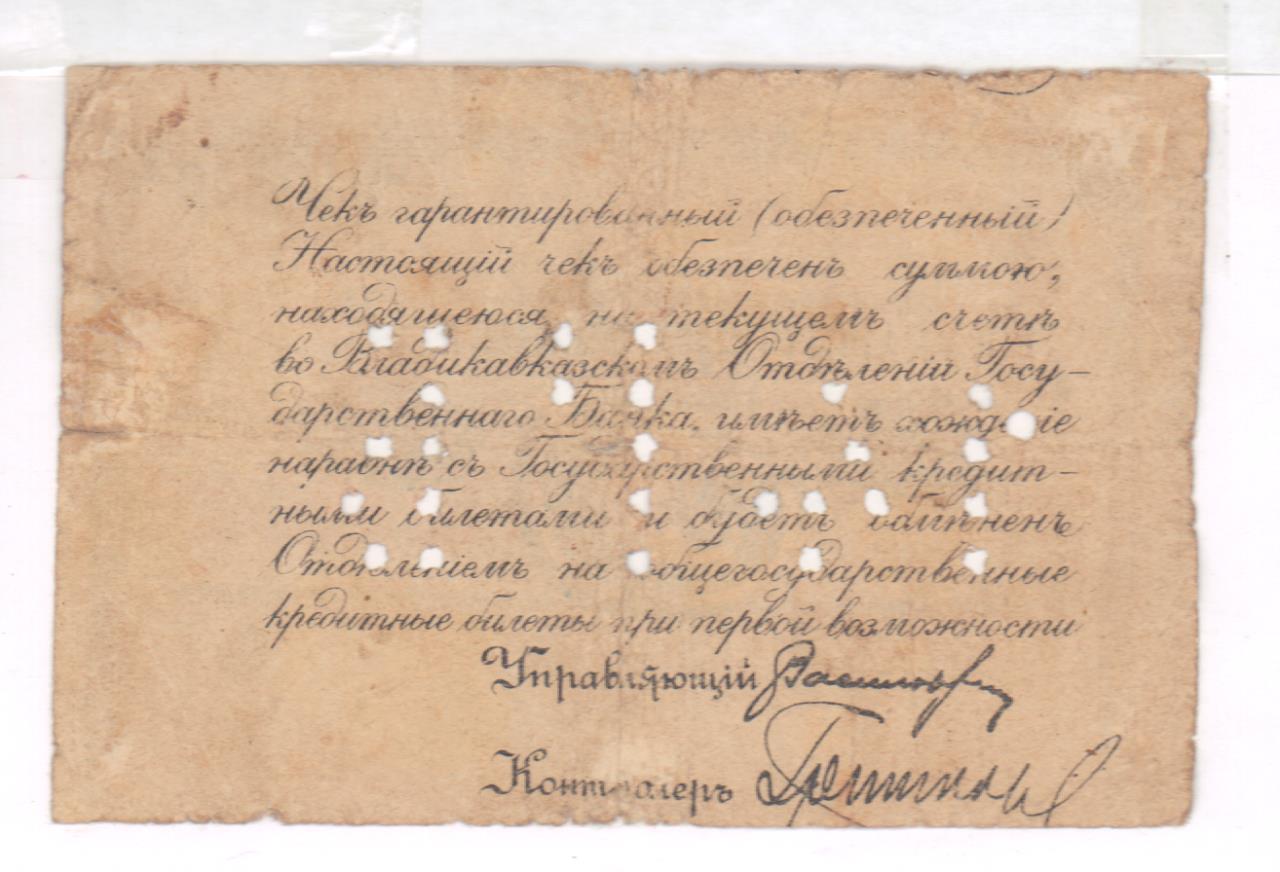 Чекъ гарантированный (обезпеченный)
Настоящій чекъ обезпеченъ суммою,
находящеюся на текущемъ счетѣ
во Владикавказскомъ Отдѣленіи Госу-
дарственнаго Банка, имѣетъ хожденіе
наравнѣ съ Государственными кредит-
ными билетами и будетъ обмѣненъ
Отдѣленіемъ на общегосударственные
кредитные билеты при первой возможности
Управляющій
Контролеръ